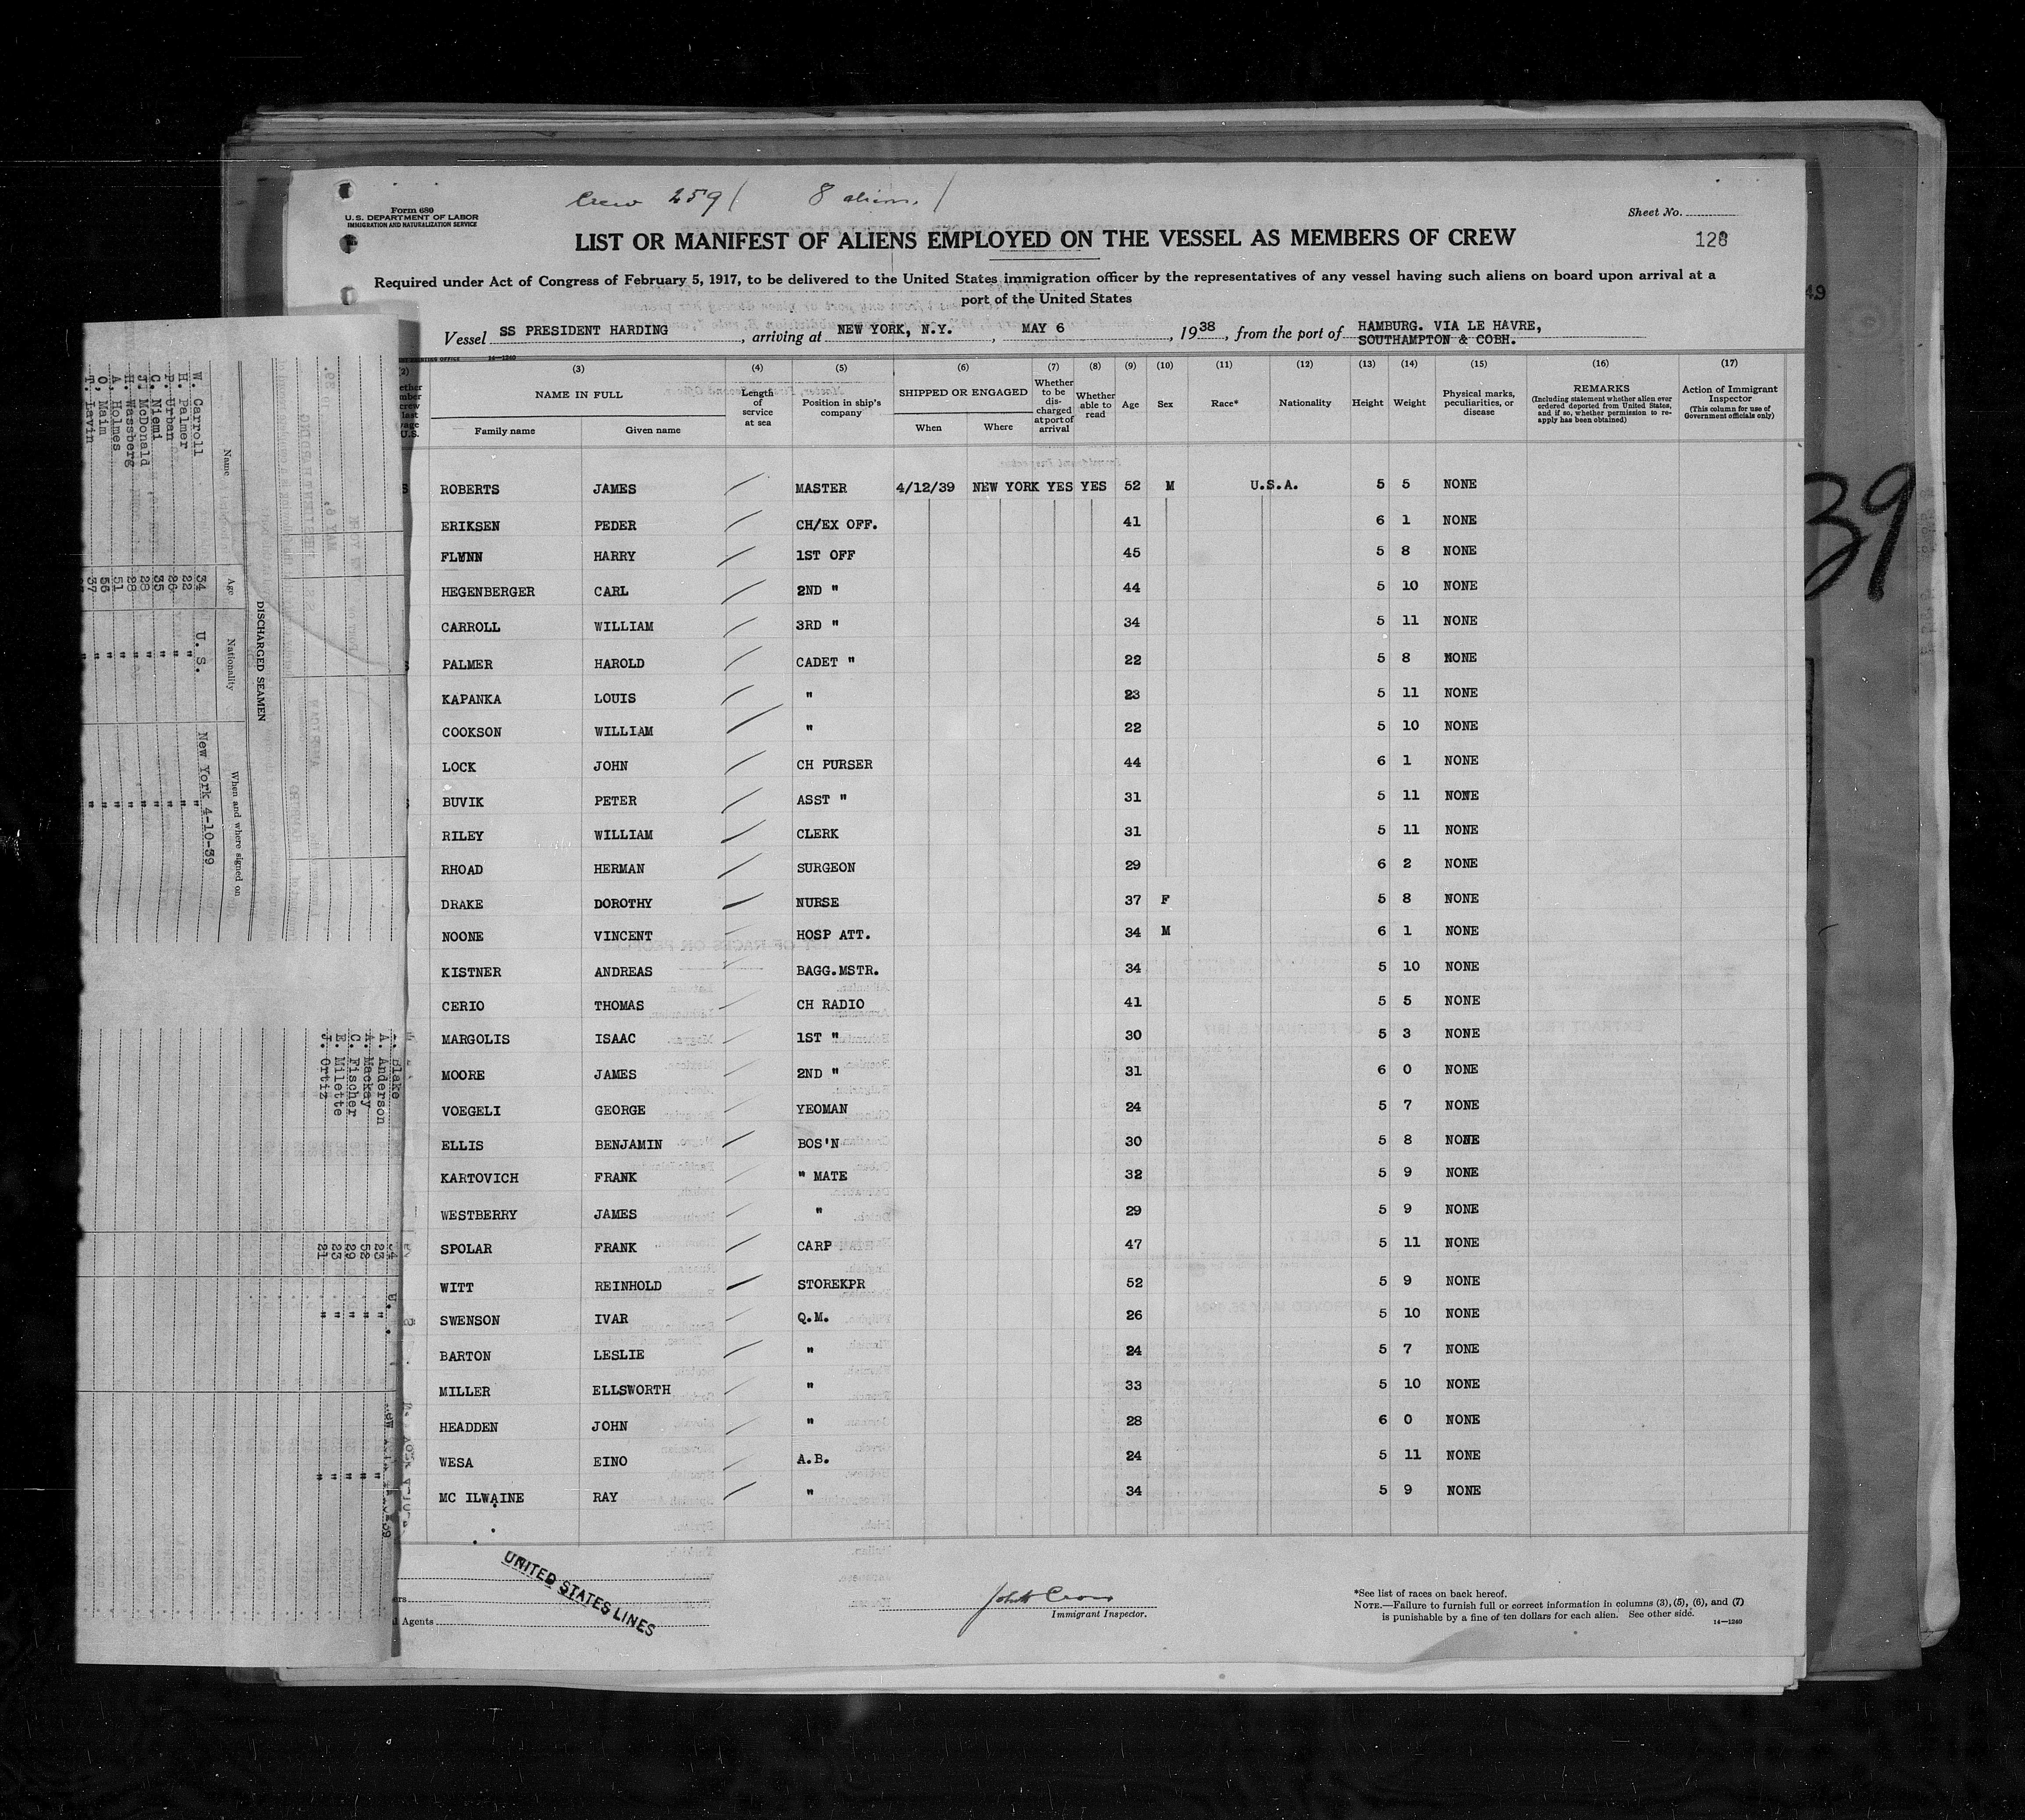 Crew 259 / 8 aliens. /
Form 680
U.S. DEPARTMENT OF LABOR
IMMIGRATION AND NATURALIZATION SERVICE
Sheet No.
LIST OR MANIFEST OF ALIENS EMPLOYED ON THE VESSEL AS MEMBERS OF CREW
128
Required under Act of Congress of February 5, 1917, to be delivered to the United States immigration officer by the representatives of any vessel having such aliens on board upon arrival at a
port of the United States
Vessel SS PRESIDENT HARDING, arriving at NEW YORK, N.Y., MAY 6, 1938, from the port of HAMBURG. VIA LE HAVRE,
SOUTHAMPTON & COBH.
14—1240
(2) (3) (4) (5) (6) (7) (8) (9) (10) (11) (12) (13) (14) (15) (16) (17)
NAME IN FULL
Family name Given name
Length of service at sea
Position in ship's company
SHIPPED OR ENGAGED
When Where
Whether to be discharged at port of arrival
Whether able to read
Age Sex Race* Nationality Height Weight
Physical marks, peculiarities, or disease
REMARKS
(Including statement whether alien ever ordered deported from United States, and if so, whether permission to re-apply has been obtained)
Action of Immigrant Inspector
(This column for use of Government officials only)
ROBERTS JAMES MASTER 4/12/39 NEW YORK YES YES 52 M U.S.A. 5 5 NONE
ERIKSEN PEDER CH/EX OFF. 41 6 1 NONE
FLYNN HARRY 1ST OFF 45 5 8 NONE
HEGENBERGER CARL 2ND " 44 5 10 NONE
CARROLL WILLIAM 3RD " 34 5 11 NONE
PALMER HAROLD CADET " 22 5 8 NONE
KAPANKA LOUIS " 23 5 11 NONE
COOKSON WILLIAM " 22 5 10 NONE
LOCK JOHN CH PURSER 44 6 1 NONE
BUVIK PETER ASST " 31 5 11 NONE
RILEY WILLIAM CLERK 31 5 11 NONE
RHOAD HERMAN SURGEON 29 6 2 NONE
DRAKE DOROTHY NURSE 37 F 5 8 NONE
NOONE VINCENT HOSP ATT. 34 M 6 1 NONE
KISTNER ANDREAS BAGG.MSTR. 34 5 10 NONE
CERIO THOMAS CH RADIO 41 5 5 NONE
MARGOLIS ISAAC 1ST " 30 5 3 NONE
MOORE JAMES 2ND " 31 6 0 NONE
VOEGELI GEORGE YEOMAN 24 5 7 NONE
ELLIS BENJAMIN BOS'N 30 5 8 NONE
KARTOVICH FRANK " MATE 32 5 9 NONE
WESTBERRY JAMES " 29 5 9 NONE
SPOLAR FRANK CARP 47 5 11 NONE
WITT REINHOLD STOREKPR 52 5 9 NONE
SWENSON IVAR Q.M. 26 5 10 NONE
BARTON LESLIE " 24 5 7 NONE
MILLER ELLSWORTH " 33 5 10 NONE
HEADDEN JOHN " 28 6 0 NONE
WESA EINO A.B. 24 5 11 NONE
MC ILWAINE RAY " 34 5 9 NONE
UNITED STATES LINES
Agents
Immigrant Inspector.
*See list of races on back hereof.
NOTE.—Failure to furnish full or correct information in columns (3), (5), (6), and (7)
is punishable by a fine of ten dollars for each alien. See other side.
14—1240
39
49
DISCHARGED SEAMEN
Name Age Nationality When and where signed on
W. Carroll 34 U. S. New York 4-10-39
H. Palmer 22 " "
P. Urban 26 " "
C. Niemi 35 " "
J. McDonald 28 " "
H. Wassberg 28 " "
A. Holmes 51 " "
O. Maim 56 " "
T. Lavin 37 " "
Blake
A. Anderson 23 " "
A. Mackay 52 " "
C. Fischer 29 " "
E. Milette 23 " "
J. Ortiz 21 " "